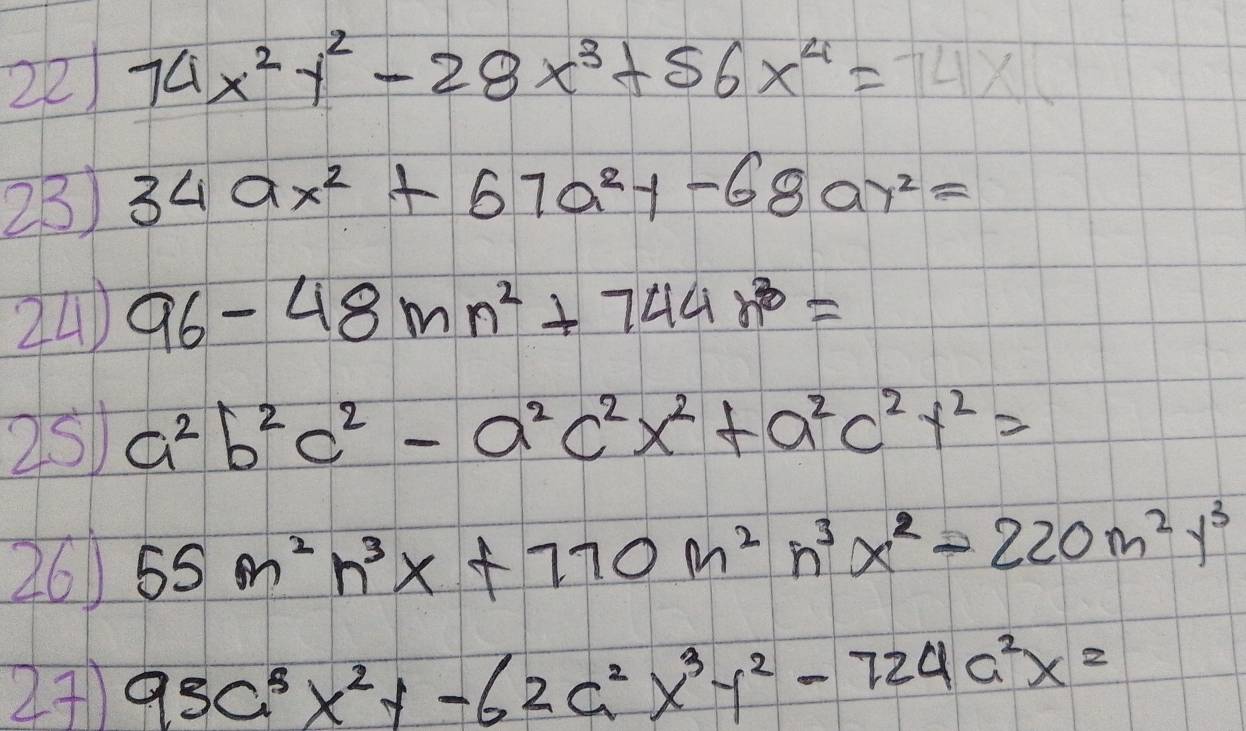 22) 14x² y² - 28x³ + 56x⁴ = 14x(
23) 34ax² + 51a²y - 68ay² =
24) 96 - 48mn² + 144n³ =
25) a²b²c² - a²c²x² + a²c²y² =
26) 55m²n³x + 110m²n³x² - 220m²y³
27) 93a³x²y - 62a²x³y² - 124a²x =